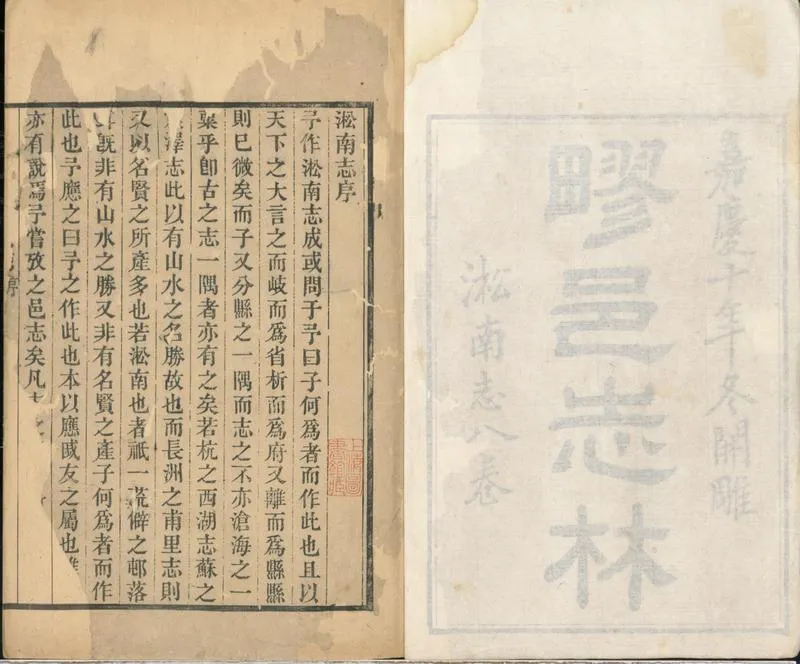 嘉慶十年冬開雕
疁邑志林
淞南志八卷
淞南志序
予作淞南志成或問于予曰子何爲者而作此也且以
天下之大言之而岐而爲省析而爲府又離而爲縣縣
則已微矣而子又分縣之一隅而志之不亦滄海之一
粟乎卽古之志一隅者亦有之矣若杭之西湖志蘇之
澤志此以有山水之名勝故也而長洲之甫里志則
又以名賢之所產多也若淞南也者祇一荒僻之邨落
旣非有山水之勝又非有名賢之產子何爲者而作
此也予應之曰予之作此也本以應戚友之屬也
亦有說焉予嘗攷之邑志矣凡
序